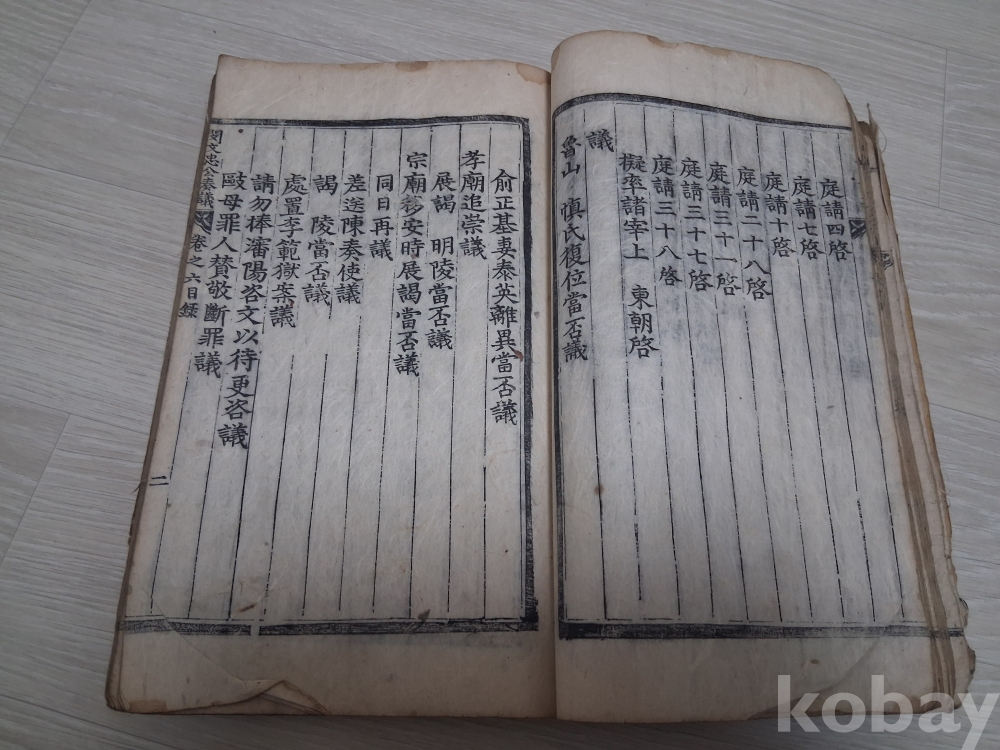 庭請四啓
庭請七啓
庭請十啓
庭請二十八啓
庭請三十一啓
庭請三十七啓
庭請三十八啓
擬率諸宰上 東朝啓
議
魯山 愼氏復位當否議
俞正基妻泰英離異當否議
孝廟追崇議
展謁 明陵當否議
宗廟移安時展謁當否議
同日再議
差送陳奏使議
謁 陵當否議
處置李範獄案議
請勿捧瀋陽咨文以待更咨議
敺母罪人贊敬斷罪議
閔文忠公奏議 卷之六目錄 二
kobay